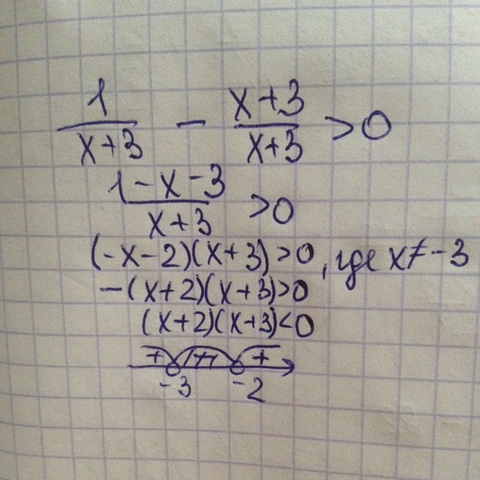 1/(x+3) - (x+3)/(x+3) > 0
(1-x-3)/(x+3) > 0
(-x-2)(x+3)>0, где x≠-3
-(x+2)(x+3)>0
(x+2)(x+3)<0
+ +
-3 -2